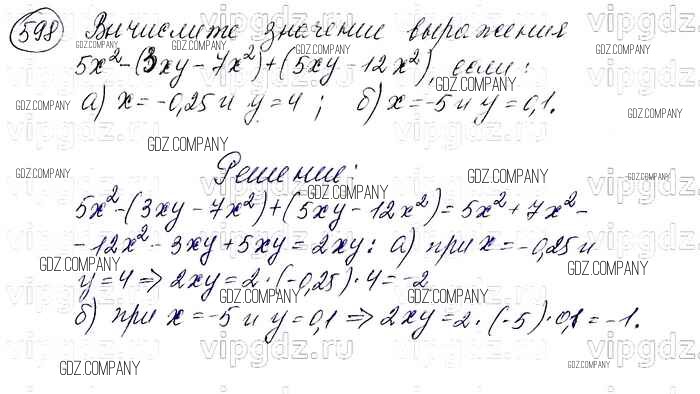 598 Вычислите значение выражения
5x² - (3xy - 7x²) + (5xy - 12x²), если:
а) x = -0,25 и y = 4 ; б) x = -5 и y = 0,1.
Решение:
5x² - (3xy - 7x²) + (5xy - 12x²) = 5x² + 7x² -
- 12x² - 3xy + 5xy = 2xy: а) при x = -0,25 и
y = 4 => 2xy = 2 · (-0,25) · 4 = -2
б) при x = -5 и y = 0,1 => 2xy = 2 · (-5) · 0,1 = -1.
vipgdz.ru
GDZ.COMPANY